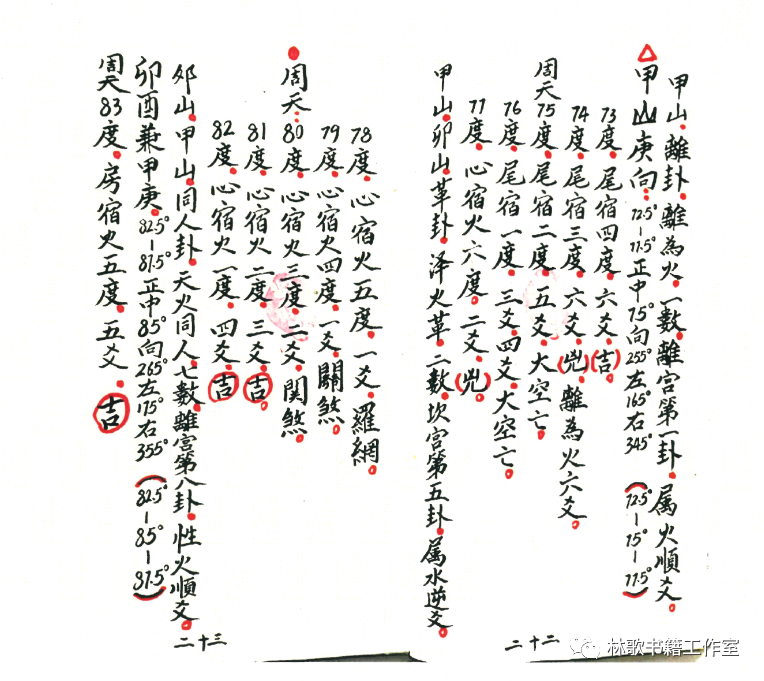 甲山.離卦.離為火.一數.離宮第一卦.属火順爻。
甲山庚向:72.5°-77.5°正中75°向255°左165°右345°(72.5°-75°-77.5°)
73度.尾宿四度.六爻.(吉)
74度.尾宿三度.六爻.(兇).離為火六爻。
周天75度.尾宿二度.五爻.大空亡。
76度.尾宿一度.三爻.四爻.大空亡。
77度.心宿火六度.二爻.(兇)
甲山.卯山.革卦.泽火革.二數.坎宮第五卦.属水逆爻。
二十二
78度.心宿火五度.一爻.羅網。
79度.心宿火四度.一爻.關煞。
周天:80度.心宿火三度.二爻.関煞。
81度.心宿火二度.三爻.吉
82度.心宿火一度.四爻.吉
夘山.甲山.同人卦.天火同人.七數.離宮第八卦.性火順爻。
卯酉兼甲庚.82.5°-87.5°正中85°向265°左175°右355°(82.5°-85°-87.5°)
周天83度.房宿火五度.五爻.吉
二十三
林歌书籍工作室